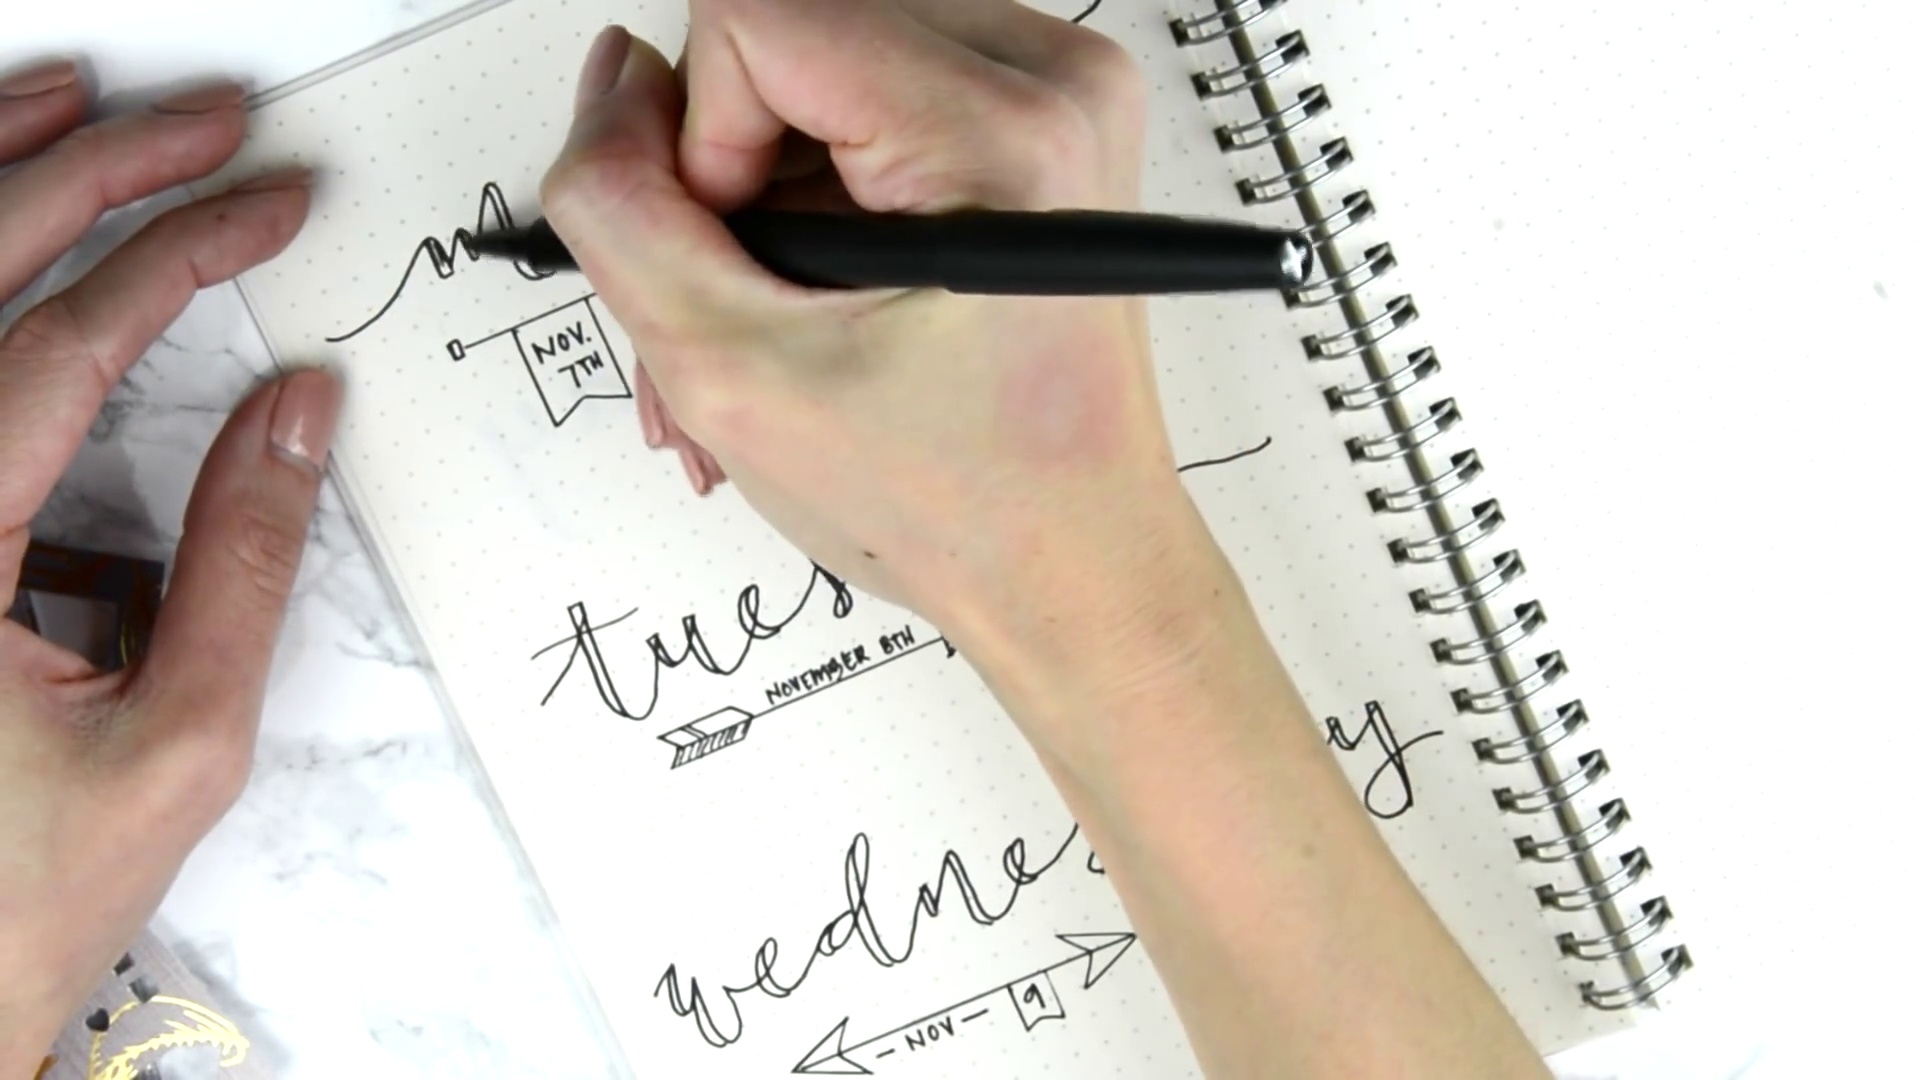 NOV.
7TH
tues
NOVEMBER 8TH
wednes
- NOV - 9